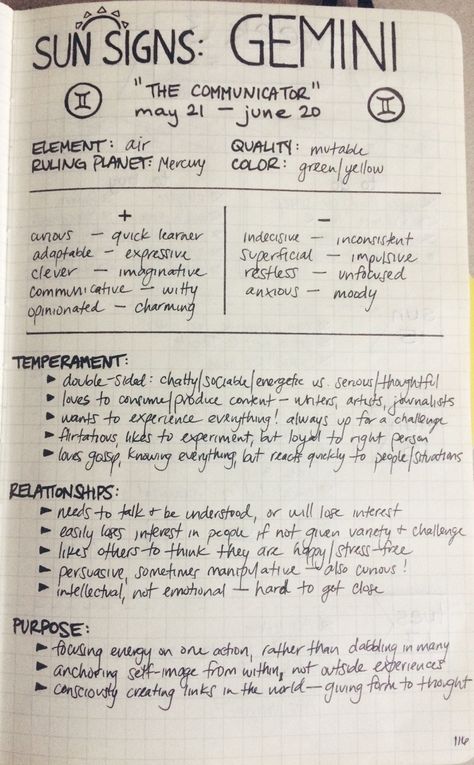 SUN SIGNS: GEMINI
♊ "THE COMMUNICATOR" ♊
may 21 — june 20
ELEMENT: air QUALITY: mutable
RULING PLANET: Mercury COLOR: green/yellow
+ −
curious — quick learner indecisive — inconsistent
adaptable — expressive superficial — impulsive
clever — imaginative restless — unfocused
communicative — witty anxious — moody
opinionated — charming
TEMPERAMENT:
► double-sided: chatty/sociable/energetic vs. serious/thoughtful
► loves to consume/produce content — writers, artists, journalists
► wants to experience everything! always up for a challenge
► flirtatious, likes to experiment, but loyal to right person
► loves gossip, knowing everything, but reacts quickly to people/situations
RELATIONSHIPS:
► needs to talk + be understood, or will lose interest
► easily loses interest in people if not given variety + challenge
► likes others to think they are happy/stress-free
► persuasive, sometimes manipulative — also curious!
► intellectual, not emotional — hard to get close
PURPOSE:
► focusing energy on one action, rather than dabbling in many
► anchoring self-image from within, not outside experiences
► consciously creating links in the world — giving form to thought
116